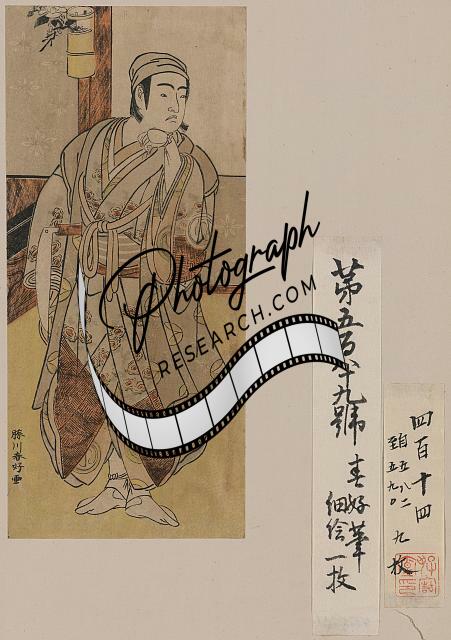 勝川春好画
Photograph
RESEARCH.COM
第五百八十九號
春好筆
細絵一枚
四百十四
自五八二
至五九〇
九枚